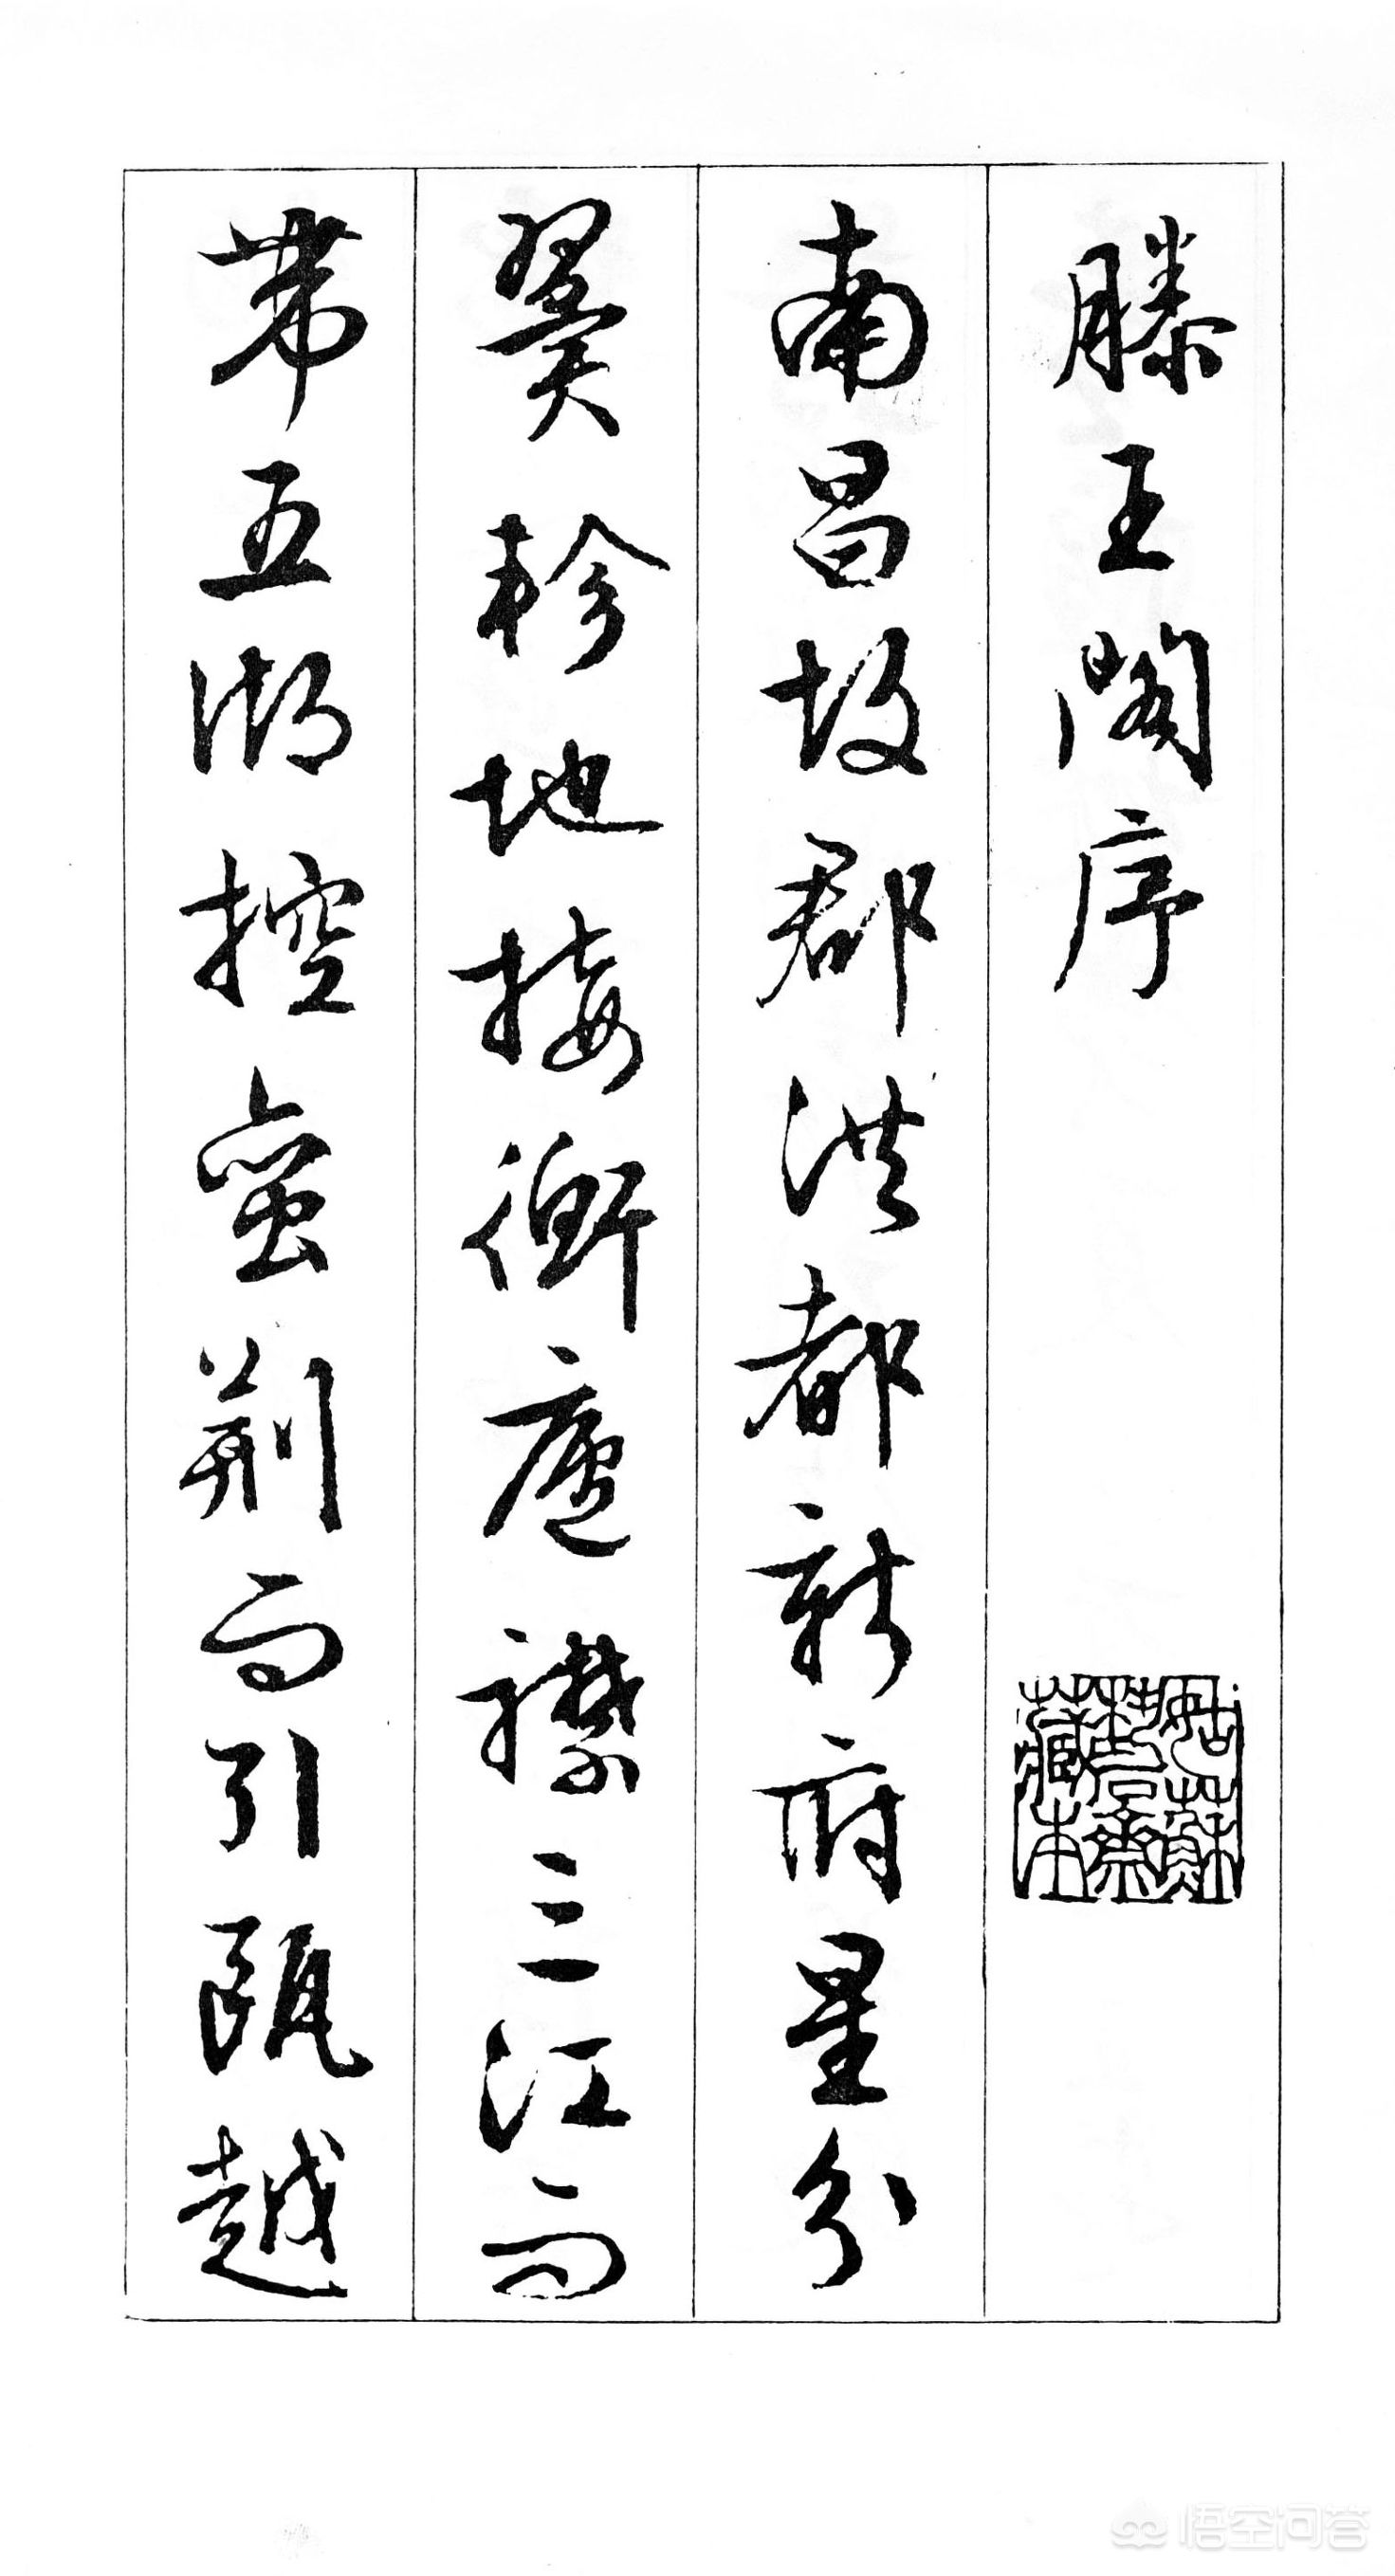 滕王閣序
南昌故郡洪都新府星分
翼軫地接衡廬襟三江而
帶五湖控蠻荊而引甌越
姑蘇
齋
藏本
悟空问答